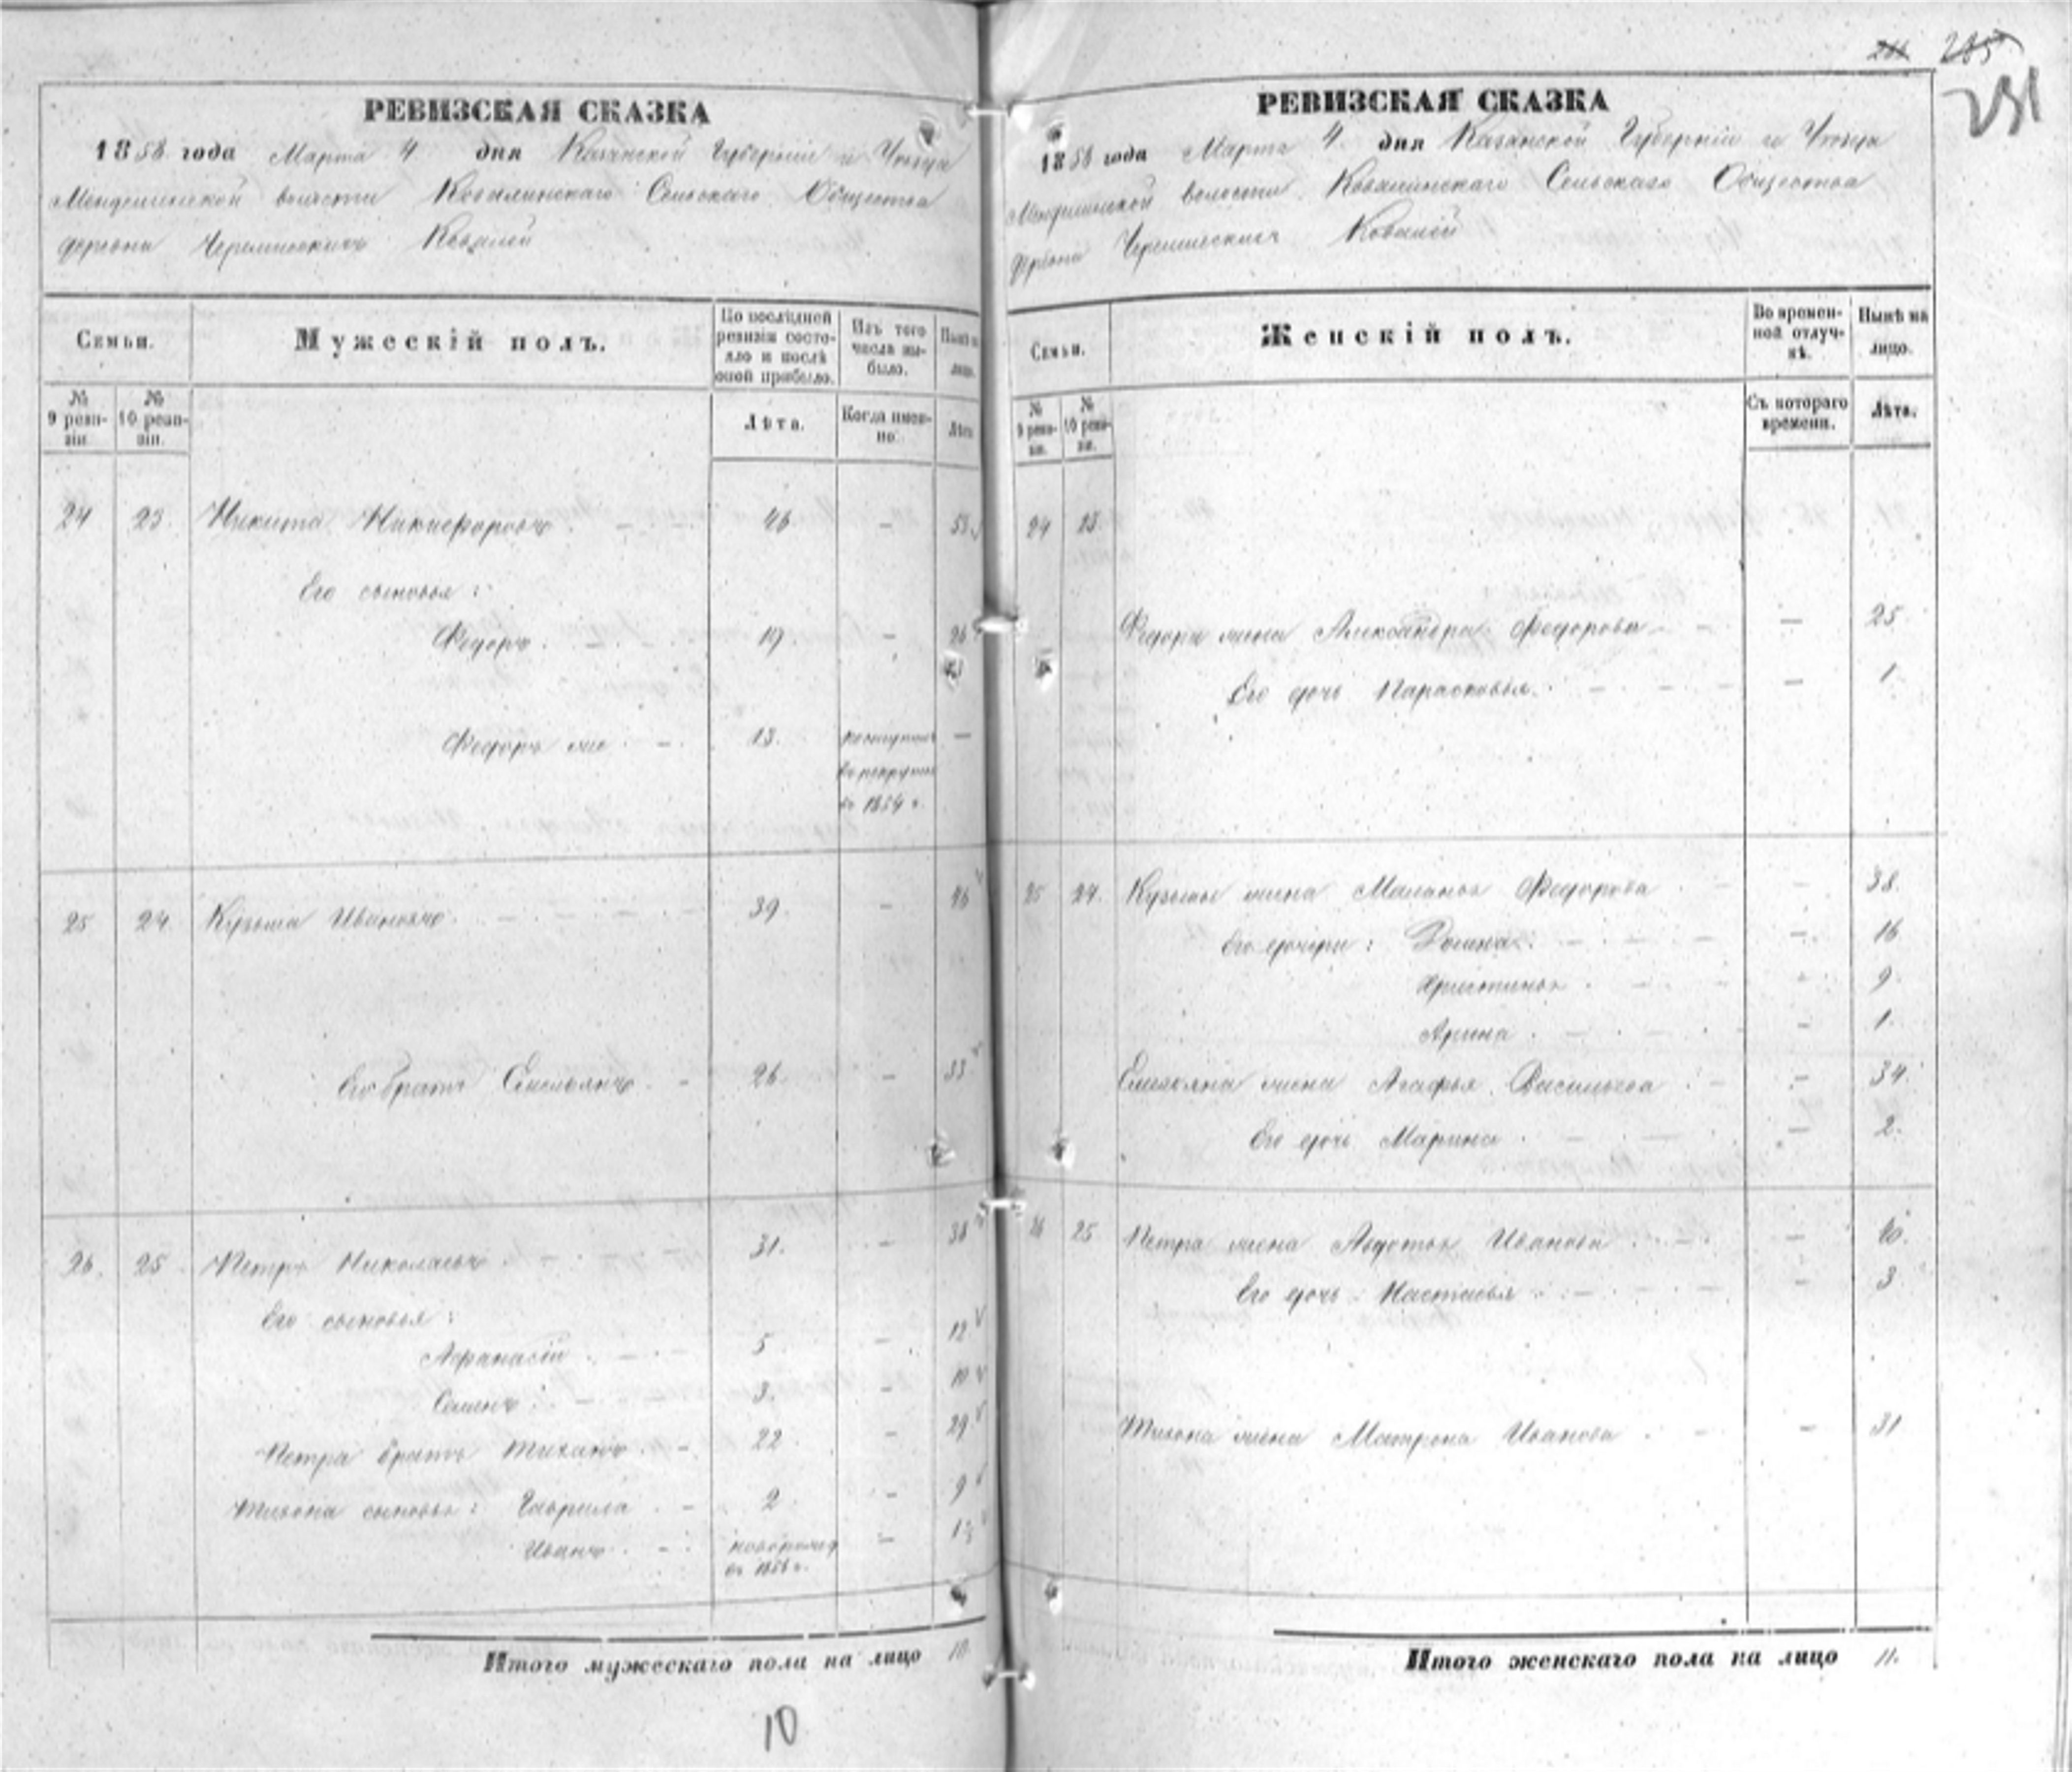 285
231
РЕВИЗСКАЯ СКАЗКА
1858 года Марта 4 дня Казанской Губернiи и Уѣзда
волости Ковалинскаго Сельскаго Общества
деревни Черемисскихъ Ковалей
Семьи.
Мужескій полъ.
По послѣдней ревизіи состояло и послѣ оной прибыло.
Изъ того числа выбыло.
Нынѣ на лицо.
№ 9 ревизіи.
№ 10 ревизіи.
Лѣта.
Когда именно.
Лѣта
24 23. Никита Никифоровъ 46 — 53
Его сыновья:
Федоръ 19. — 26
Федоръ же 13. поступилъ въ рекруты въ 1854 г. —
25 24. Кузьма Ивановъ 39. — 46
Его братъ Емельянъ 26. — 33
26. 25 Петръ Николаевъ 31. — 38
Его сыновья:
Афанасій 5 — 12
Семенъ 3. — 10
Петра братъ Тихонъ 22 — 29
Тихона сыновья: Гаврила 2 — 9
Иванъ новорожд въ 1856 г. — 1½
Итого мужескаго пола на лицо 10.
10
РЕВИЗСКАЯ СКАЗКА
1858 года Марта 4 дня Казанской Губернiи и Уѣзда
волости Ковалинскаго Сельскаго Общества
деревни Черемисскихъ Ковалей
Семьи.
Женскій полъ.
Во временной отлучкѣ.
Нынѣ на лицо.
№ 9 ревизіи.
№ 10 ревизіи.
Съ котораго времени.
Лѣта.
24 23.
Федора жена Александра Федорова — 25
Его дочь Парасковья — 1
25 24. Кузьмы жена Маланья Федорова — 38.
Его дочери: — 16
Христинья — 9.
Арина — 1.
Емельяна жена Агафья Васильева — 34.
Его дочь Марина — 2.
26 25 Петра жена Авдотья Иванова — 40.
Его дочь Настасья — 3
Тихона жена Матрена Иванова — 31
Итого женскаго пола на лицо 11.